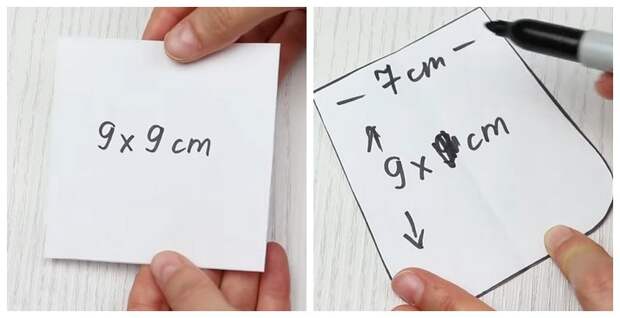 9 x 9 cm
- 7 cm -
9 x cm